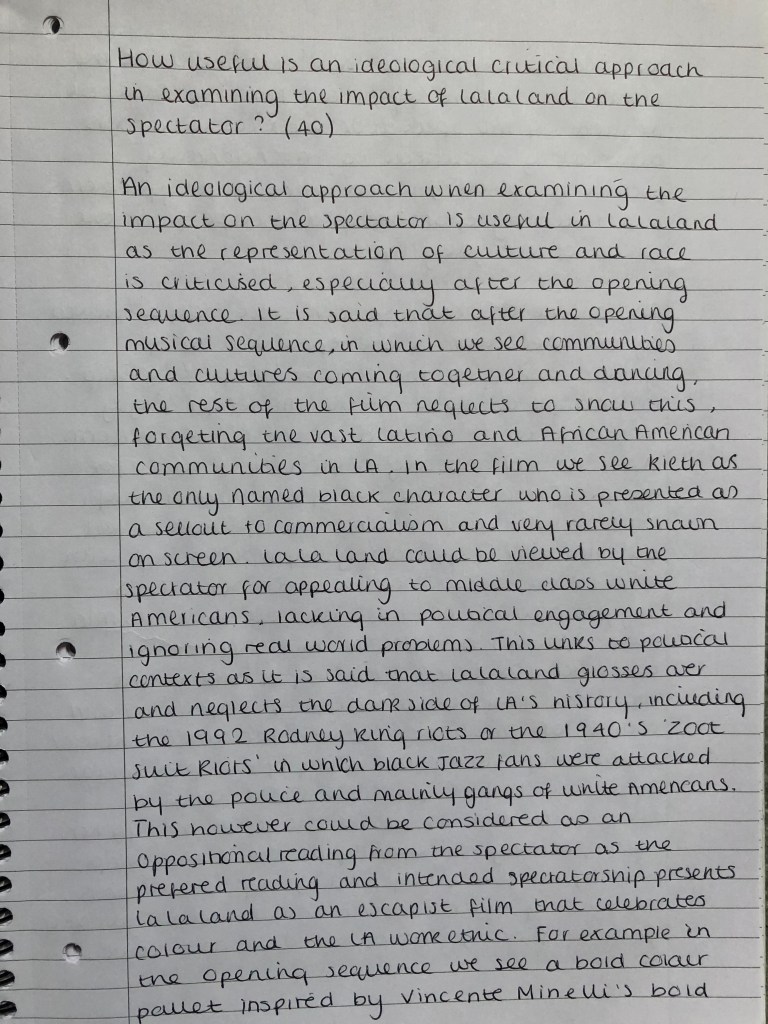 How useful is an ideological critical approach
in examining the impact of lalaland on the
spectator? (40)
An ideological approach when examining the
impact on the spectator is useful in lalaland
as the representation of culture and race
is criticised, especially after the opening
sequence. It is said that after the opening
musical sequence, in which we see communities
and cultures coming together and dancing,
the rest of the film neglects to show this,
forgeting the vast latino and African American
communities in LA. In the film we see Kieth as
the only named black character who is presented as
a sellout to commercialism and very rarely shown
on screen. La la land could be viewed by the
spectator for appealing to middle class white
Americans, lacking in political engagement and
ignoring real world problems. This links to political
contexts as it is said that lalaland glosses over
and neglects the dark side of LA's history, including
the 1992 Rodney King riots or the 1940's 'Zoot
Suit Riots' in which black Jazz fans were attacked
by the police and mainly gangs of white Americans.
This however could be considered as an
oppositional reading from the spectator as the
prefered reading and intended spectatorship presents
la la land as an escapist film that celebrates
colour and the LA work ethic. For example in
the opening sequence we see a bold colour
pallet inspired by Vincente Minelli's bold